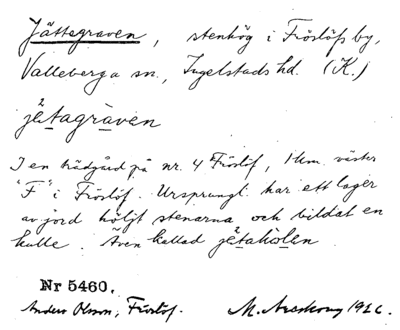 Jättegraven, stenhög i Fröslöfs by,
Valleberga sn., Ingelstads hd. (K.)
jętagraven
I en trädgård på nr. 4 Fröslöf, 1 km. väster
"F" i Fröslöf. Ursprungl. har ett lager
av jord höljt stenarna och bildat en
kulle. Även kallad jętahölen
Nr 5460.
Anders Olsson, Fröslöf. M. Areskoug 1926.